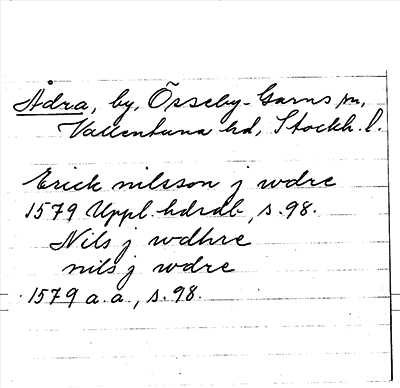 Ådra, by, Össeby-Garns sn,
Vallentuna hd, Stockh. l.
Erick nilsson j wdre
1579 Uppl. hdrdb, s. 98.
Nils j wdhre
nils j wdre
1579 a. a., s. 98.